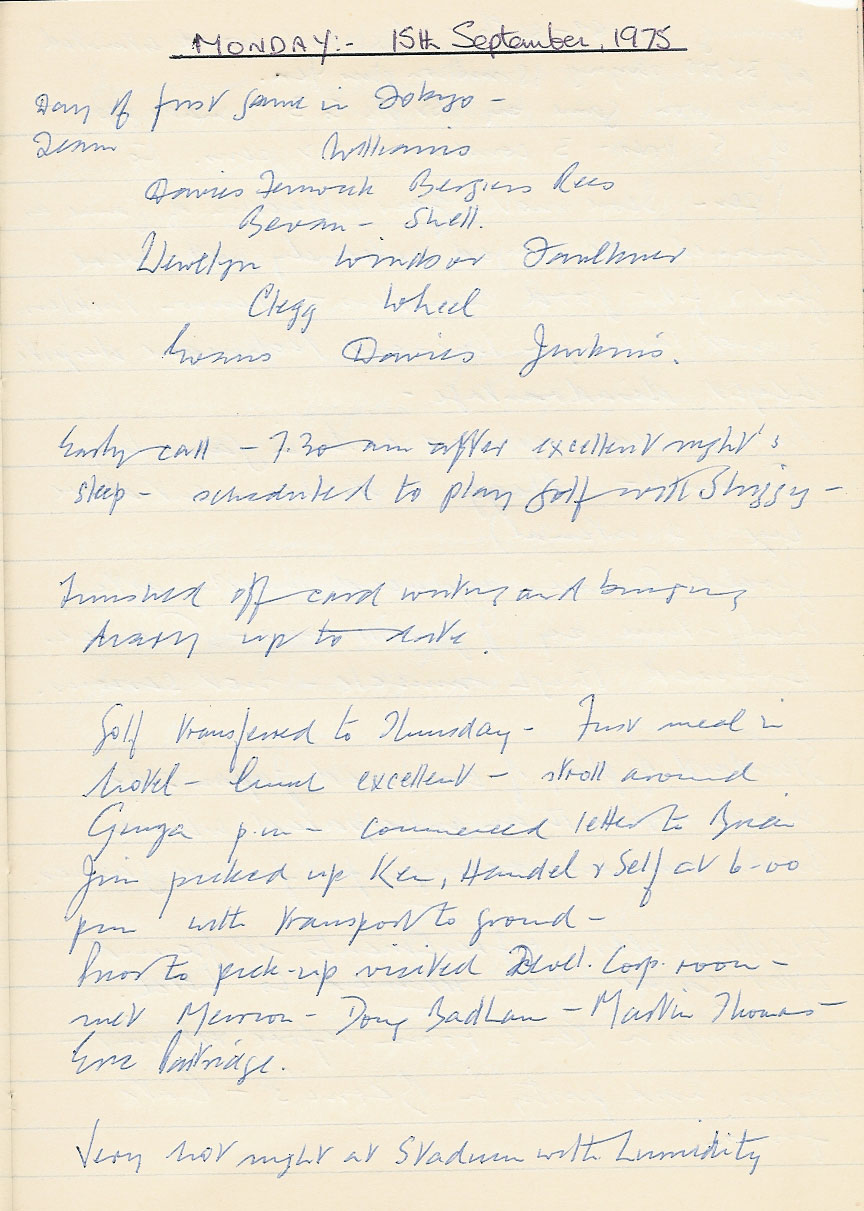 MONDAY:- 15th September, 1975
Day of first game in Tokyo -
Team Williams
Davies Fenwick Bergiers Rees
Bevan - Shell.
Llewelyn Windsor Faulkner
Clegg Wheel
Evans Davies Jenkins.
Early call - 7.30 am after excellent night's
sleep - scheduled to play golf with Shiggy -
Finished off card writing and bringing
diary up to date.
Golf transferred to Thursday - First meal in
hotel - lunch excellent - stroll around
Ginza p.m - commenced letter to Brian
Jim picked up Ken, Handel & Self at 6-00
pm with transport to ground -
Prior to pick-up visited Devel. Corp. room -
met Meirion - Doug Badham - Martin Thomas -
Eric Partridge.
Very hot night at Stadium with humidity